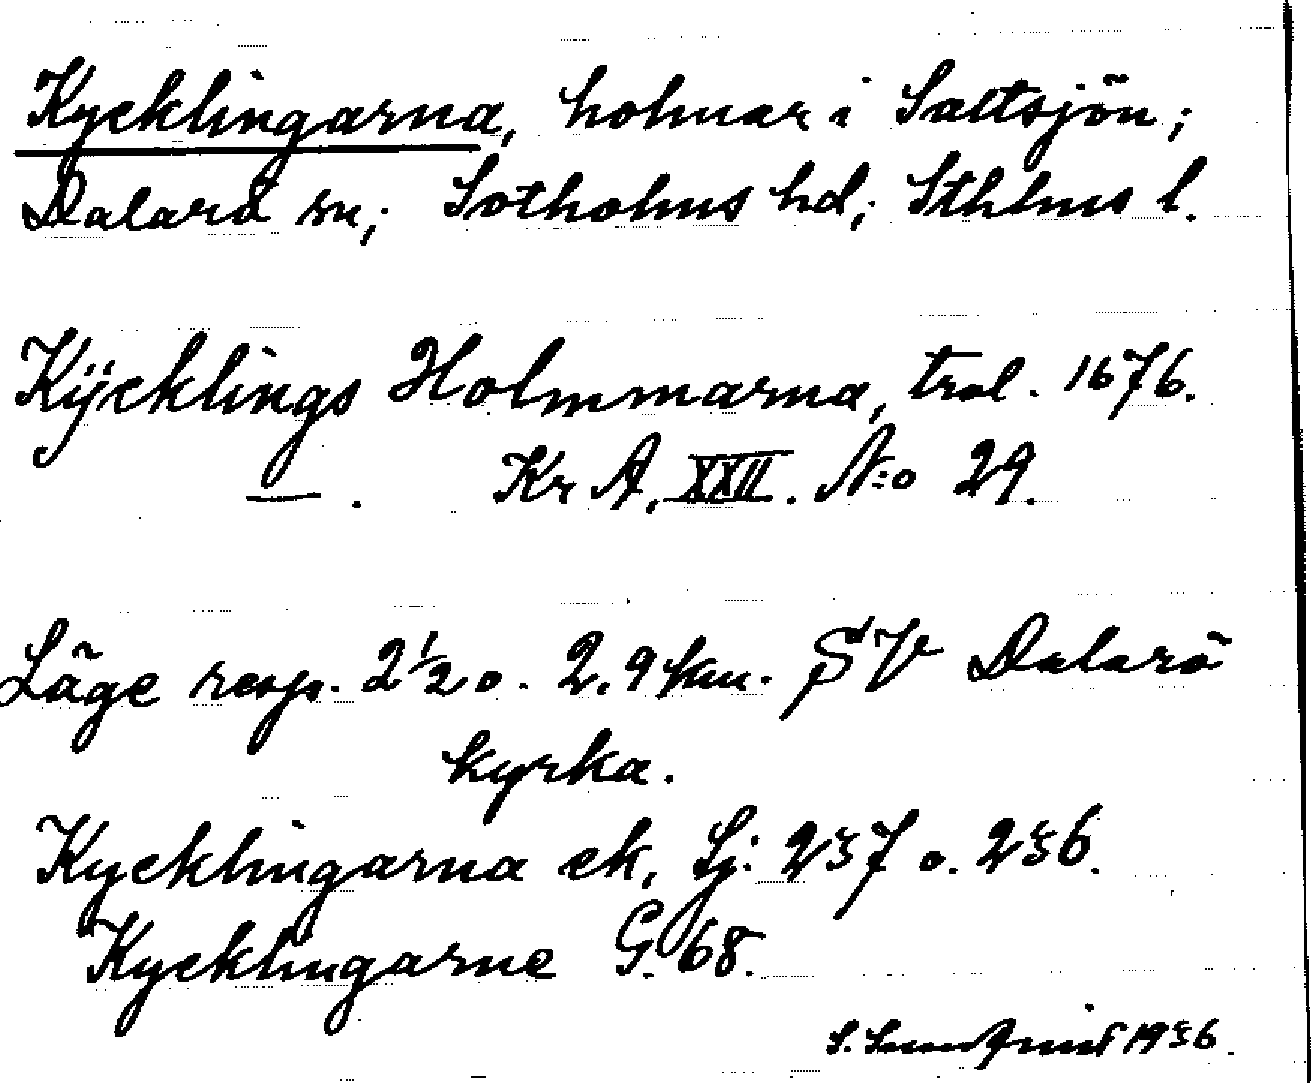 Kycklingarna, holmar i Saltsjön;
Dalarö sn; Sotholms hd; Sthlms l.
Kÿcklings Holmmarna, trol. 1676.
—. Kr A, XXII. N:o 29.
Läge resp. 2½ o. 2.9 km. SV Dalarö
kyrka.
Kycklingarna ek, Sj: 237 o. 236.
Kycklingarne G. 68.
S. 1936.